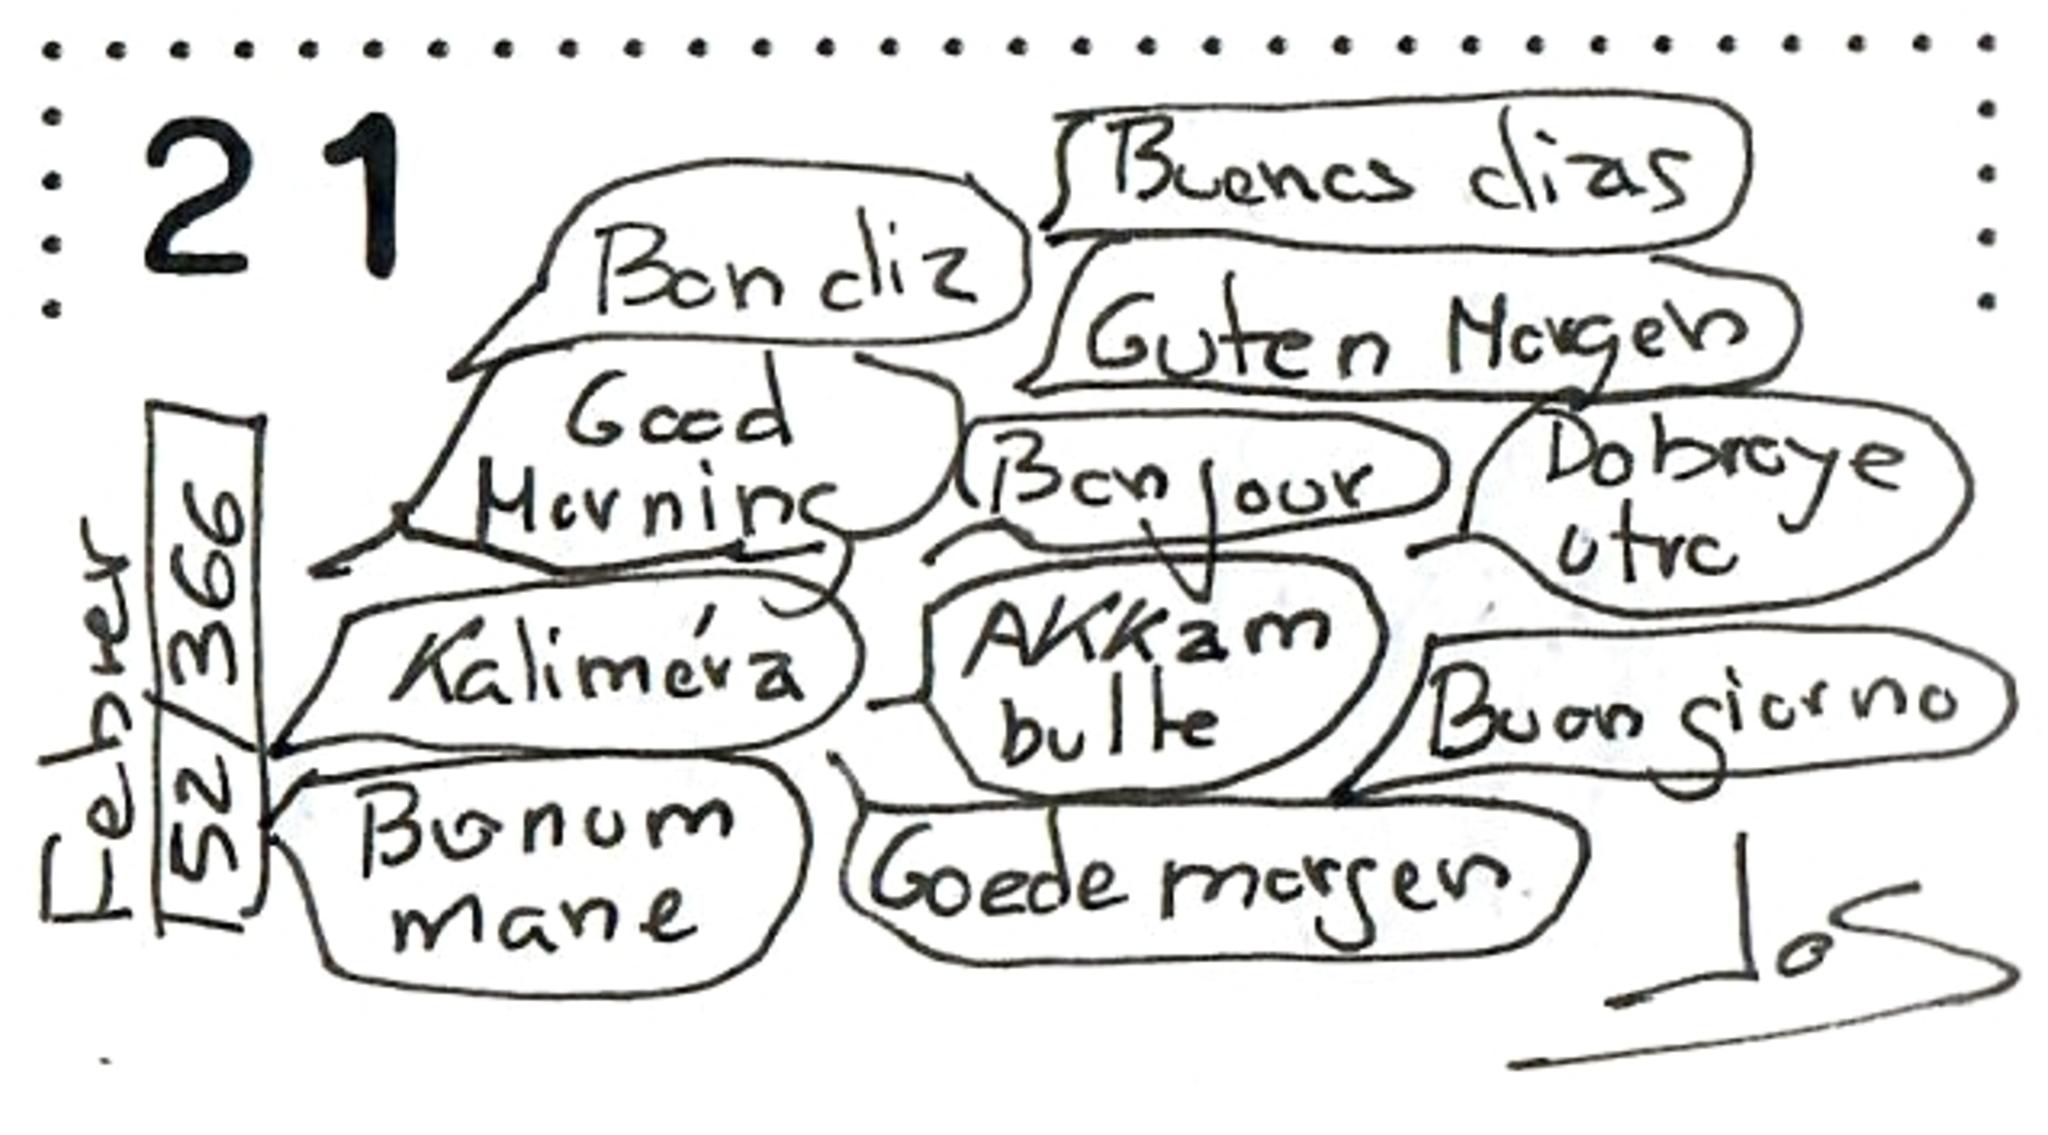 21
Buenos dias
Bon dia
Guten Morgen
Good
Morning
Bonjour
Dobroye
utro
Kaliméra
AKKam
bulte
Buon giorno
Bonum
mane
Goede morgen
Febrer
52/366
Jos